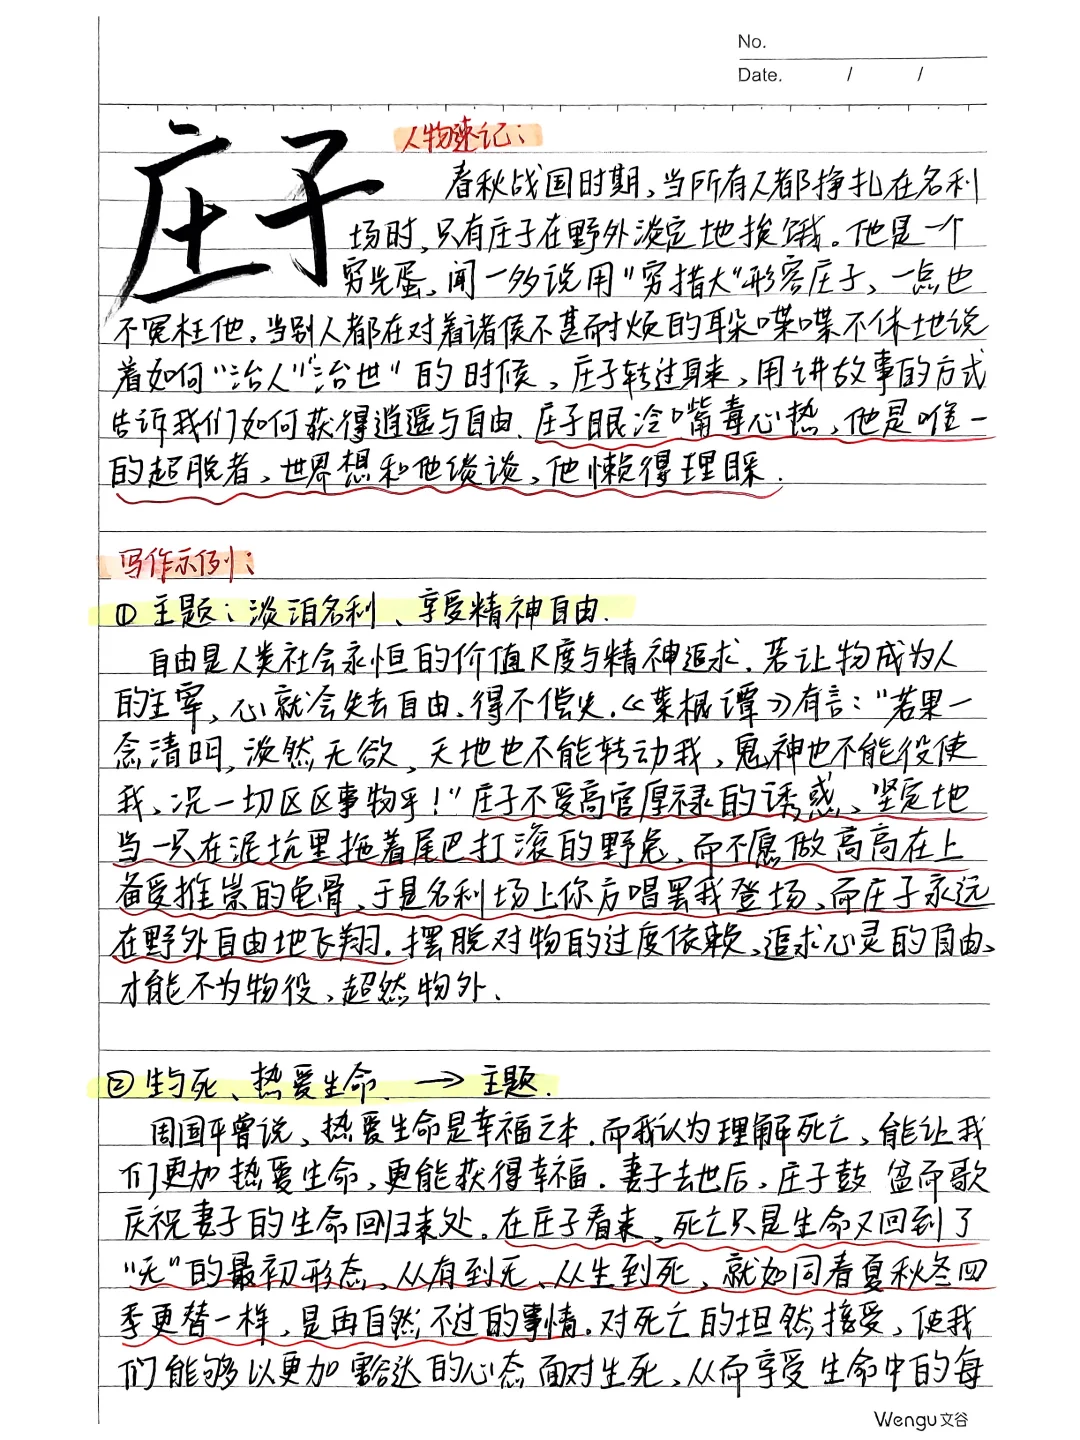 No.
Date. / /
庄子
人物速记:
春秋战国时期,当所有人都挣扎在名利
场时,只有庄子在野外淡定地挨饿。他是一个
穷光蛋,闻一多说用"穷措大"形容庄子,一点也
不冤枉他。当别人都在对着诸侯不甚耐烦的耳朵喋喋不休地说
着如何"治人""治世"的时候,庄子转过身来,用讲故事的方式
告诉我们如何获得逍遥与自由.庄子眼冷嘴毒心热,他是唯一
的超脱者,世界想和他谈谈,他懒得理睬.
写作示例:
① 主题:淡泊名利、享受精神自由.
自由是人类社会永恒的价值尺度与精神追求.若让物成为人
的主宰,心就会失去自由.得不偿失.《菜根谭》有言:"若果一
念清明,淡然无欲,天地也不能转动我,鬼神也不能役使
我,况一切区区事物乎!"庄子不受高官厚禄的诱惑、坚定地
当一只在泥坑里拖着尾巴打滚的野龟,而不愿做高高在上
备受推崇的龟骨,于是名利场上你方唱罢我登场,而庄子永远
在野外自由地飞翔.摆脱对物的过度依赖,追求心灵的自由、
才能不为物役,超然物外.
② 生与死、热爱生命. → 主题.
周国平曾说,热爱生命是幸福之本.而我认为理解死亡,能让我
们更加热爱生命,更能获得幸福.妻子去世后,庄子鼓盆而歌
庆祝妻子的生命回归来处.在庄子看来,死亡只是生命又回到了
"无"的最初形态,从有到无、从生到死,就如同春夏秋冬四
季更替一样,是再自然不过的事情.对死亡的坦然接受,使我
们能够以更加豁达的心态面对生死,从而享受生命中的每
Wengu文谷